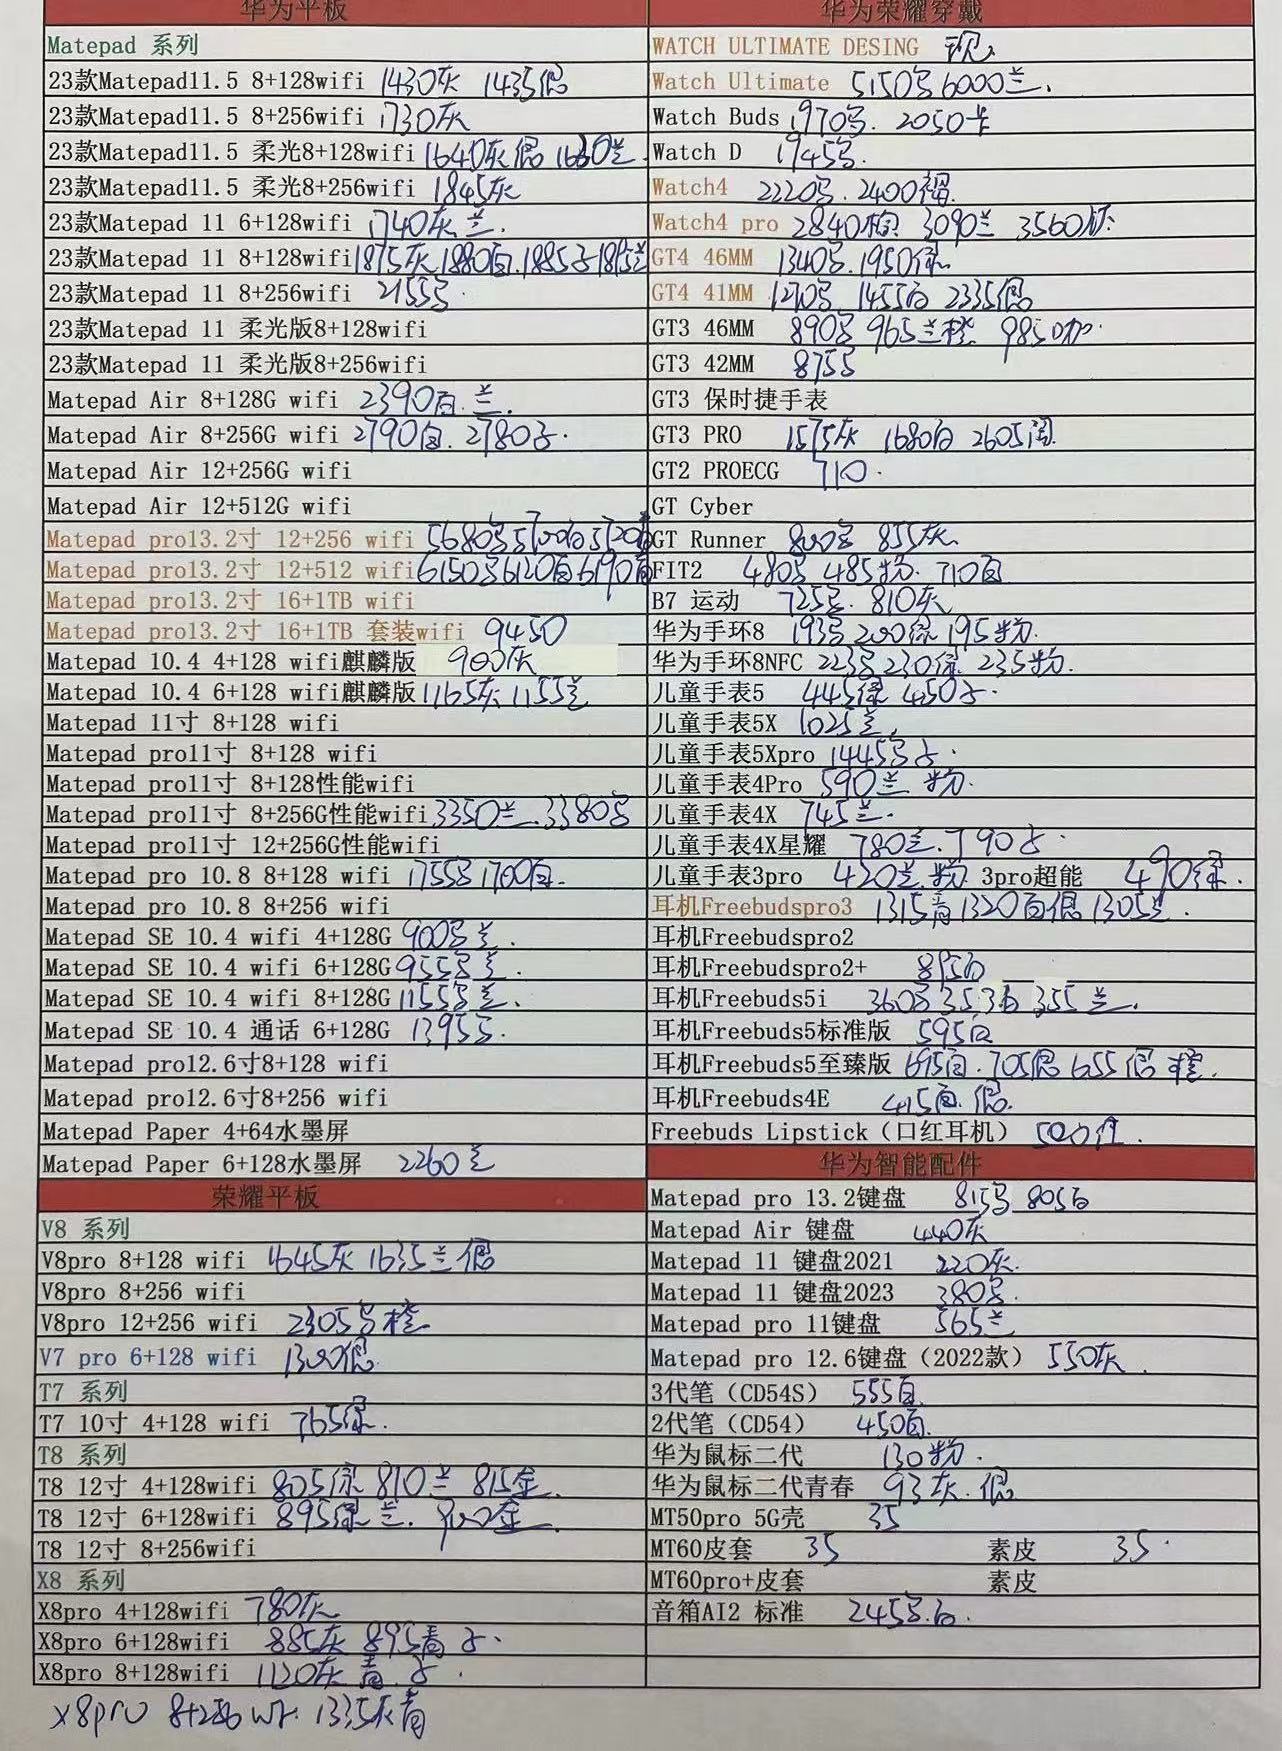 华为平板
Matepad 系列
23款Matepad11.5 8+128wifi 1430灰 1435银
23款Matepad11.5 8+256wifi 1730灰
23款Matepad11.5 柔光8+128wifi 1640灰银 1630兰
23款Matepad11.5 柔光8+256wifi 1845灰
23款Matepad 11 6+128wifi 1740灰.兰.
23款Matepad 11 8+128wifi 1875灰 1880白.1885子1815兰
23款Matepad 11 8+256wifi 2155
23款Matepad 11 柔光版8+128wifi
23款Matepad 11 柔光版8+256wifi
Matepad Air 8+128G wifi 2390白.兰.
Matepad Air 8+256G wifi 2790白.2780子.
Matepad Air 12+256G wifi
Matepad Air 12+512G wifi
Matepad pro13.2寸 12+256 wifi 5680 5700白5720
Matepad pro13.2寸 12+512 wifi 6150 6120白6190
Matepad pro13.2寸 16+1TB wifi
Matepad pro13.2寸 16+1TB 套装wifi 9450
Matepad 10.4 4+128 wifi麒麟版 900灰
Matepad 10.4 6+128 wifi麒麟版 1165灰 1155兰
Matepad 11寸 8+128 wifi
Matepad pro11寸 8+128 wifi
Matepad pro11寸 8+128性能wifi
Matepad pro11寸 8+256G性能wifi 3350兰.3380
Matepad pro11寸 12+256G性能wifi
Matepad pro 10.8 8+128 wifi 1755 1700白.
Matepad pro 10.8 8+256 wifi
Matepad SE 10.4 wifi 4+128G 900 兰.
Matepad SE 10.4 wifi 6+128G 955 兰.
Matepad SE 10.4 wifi 8+128G 1155 兰.
Matepad SE 10.4 通话 6+128G 1395
Matepad pro12.6寸8+128 wifi
Matepad pro12.6寸8+256 wifi
Matepad Paper 4+64水墨屏
Matepad Paper 6+128水墨屏 2260兰
荣耀平板
V8 系列
V8pro 8+128 wifi 1645灰 1635兰银
V8pro 8+256 wifi
V8pro 12+256 wifi 2305 橙
V7 pro 6+128 wifi 1300银.
T7 系列
T7 10寸 4+128 wifi 765绿.
T8 系列
T8 12寸 4+128wifi 805绿 810兰 815金.
T8 12寸 6+128wifi 895绿兰. 900金.
T8 12寸 8+256wifi
X8 系列
X8pro 4+128wifi 780灰
X8pro 6+128wifi 885灰 895青子.
X8pro 8+128wifi 1120灰青.子.
X8pro 8+256 1335灰青
华为荣耀穿戴
WATCH ULTIMATE DESING 现
Watch Ultimate 5150 6000兰.
Watch Buds 1970 2050卡
Watch D 1945
Watch4 2220 2400褐
Watch4 pro 2840棕 3090兰 3560钛.
GT4 46MM 1340 1950绿
GT4 41MM 1270 1455白 2335银
GT3 46MM 890 965兰橙 985咖.
GT3 42MM 875
GT3 保时捷手表
GT3 PRO 1575灰 1680白 2605
GT2 PROECG 710.
GT Cyber
GT Runner 800 855灰.
FIT2 480 485粉. 710白
B7 运动 725 810灰
华为手环8 193 200绿195粉.
华为手环8NFC 223 230绿.235粉.
儿童手表5 445绿 450子.
儿童手表5X 1025兰.
儿童手表5Xpro 1445 子.
儿童手表4Pro 590兰 粉.
儿童手表4X 745兰.
儿童手表4X星耀 780兰.790子.
儿童手表3pro 420兰.粉 3pro超能 490绿.
耳机Freebudspro3 1315青1320白银1305兰.
耳机Freebudspro2
耳机Freebudspro2+ 895白
耳机Freebuds5i 360 353白 355兰.
耳机Freebuds5标准版 595白
耳机Freebuds5至臻版 695白.705银 655银橙.
耳机Freebuds4E 415白.银.
Freebuds Lipstick（口红耳机） 500
华为智能配件
Matepad pro 13.2键盘 815 805白
Matepad Air 键盘 440灰
Matepad 11 键盘2021 220灰.
Matepad 11 键盘2023 380
Matepad pro 11键盘 565兰
Matepad pro 12.6键盘（2022款） 550灰.
3代笔（CD54S） 555白
2代笔（CD54） 450白.
华为鼠标二代 130粉.
华为鼠标二代青春 93灰.银
MT50pro 5G壳 35
MT60皮套 35 素皮 35.
MT60pro+皮套 素皮
音箱AI2 标准 245 白.